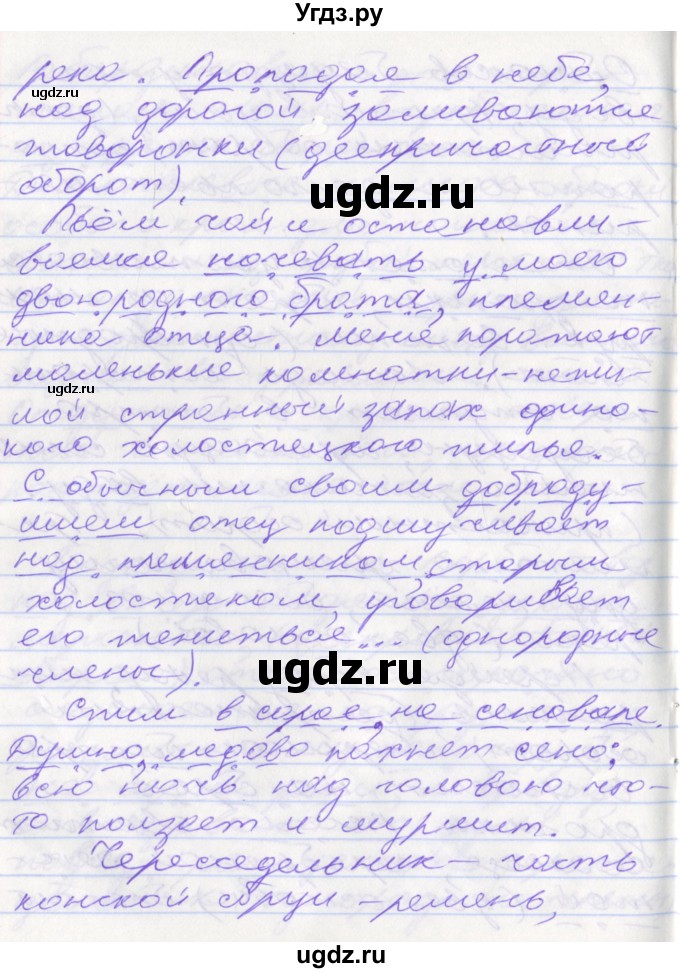 Угдз.ру
река. Пропадая в небе,
над дорогой заливаются
жаворонки (деепричастный
оборот).
Пьём чай и останавли-
ваемся ночевать у моего
двоюродного брата, племян-
ника отца. Меня поражают
маленькие комнатки-нежи-
лой странный запах одино-
кого холостецкого жилья.
С обычным своим доброду-
шием отец подшучивает
над племянником, старым
холостяком, уговаривает
его жениться... (однородные
члены).
Спим в сарае, на сеновале.
Душно, медово пахнет сено;
всю ночь над головою что-
то ползает и шуршит.
Чересседельник – часть
конской сбруи – ремень,
ugdz.ru
ugdz.ru
ugdz.ru
ugdz.ru
ugdz.ru
ugdz.ru
ugdz.ru